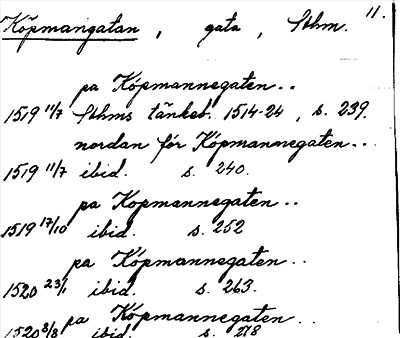 Köpmangatan, gata, Sthm. 11.
pa Köpmannegaten..
1519 11/7 Sthms tänkeb. 1514-24, s. 239.
nordan för Köpmannegaten..
1519 11/7 ibid. s. 240.
pa Köpmannegaten..
1519 17/10 ibid. s. 252
pa Köpmannegaten..
1520 23/1 ibid. s. 263.
pa Köpmannegaten..
1520 8/8 ibid. s. 278